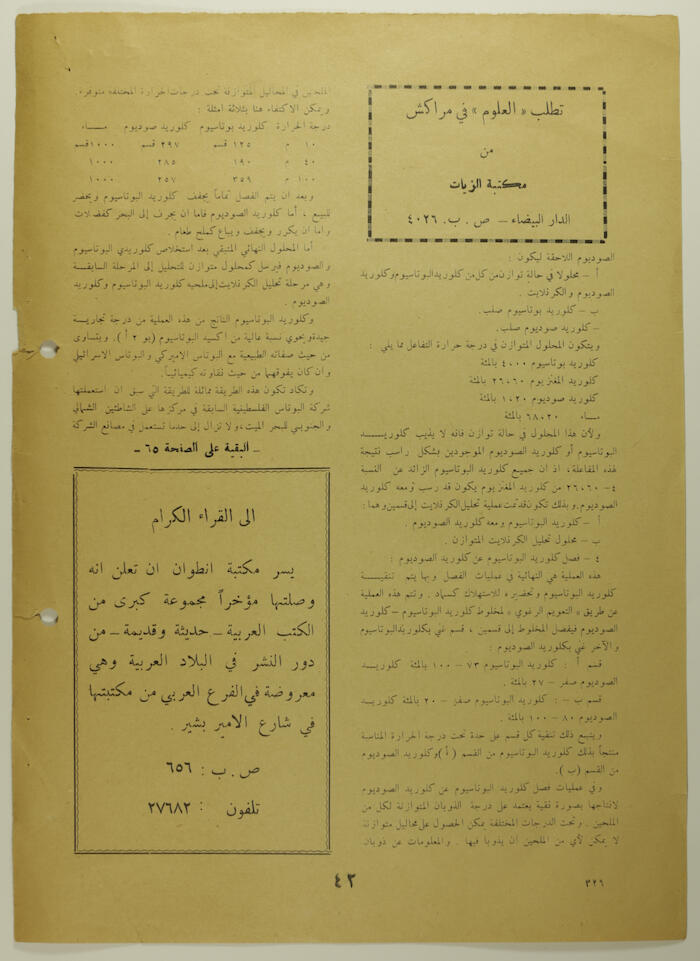 تطلب « العلوم » في مراكش
من
مكتبة الزيات
الدار البيضاء – ص . ب. ٤٠٢٦
الصوديوم اللاحقة ليكون :
أ – محلولا في حالة توازن من كل من كلوريد البوتاسيوم وكلوريد
الصوديوم . والكرنلايت .
ب – كلوريد بوتاسيوم صلب.
– كلوريد صوديوم صلب.
ويتكون المحلول المتوازن في درجة حرارة التفاعل مما يلي :
كلوريد بوتاسيوم ٤,٠٠٠ بالمئة
كلوريد المغنزيوم ٢٦,٦٠ بالمئة
كلوريد صوديوم ١,٢٠ بالمئة
مـــاء ٦٨,٢٠ بالمئة
ولأن هذا المحلول في حالة توازن فانه لا يذيب كلوريـــد
البوتاسيوم أو كلوريد الصوديوم الموجودين بشكل راسب نتيجة
لهذه المفاعلة، اذ ان جميع كلوريد البوتاسيوم الزائد عن النسبة
٤– ٢٦,٦٠ من كلوريد المغنزيوم يكون قد رسب ومعه كلوريد
الصوديوم. وبذلك تكون قد تمت عملية تحليل الكرنلايت إلى قسمين وهما:
أ – كلوريد البوتاسيوم ومعه كلوريد الصوديوم .
ب – محلول تحليل الكرنلايت المتوازن .
٤ – فصل كلوريد البوتاسيوم عن كلوريد الصوديوم :
هذه العملية هي النهائية في عمليات الفصل وبها يتم تنقيـــة
كلوريد البوتاسيوم وتحضيره للاستهلاك كسماد . وتتم هذه العملية
عن طريق « التعويم الرغوي » لمخلوط كلوريد البوتاسيوم – كلوريد
الصوديوم فيفصل المخلوط إلى قسمين ، قسم غني بكلوريد البوتاسيوم
والآخر غني بكلوريد الصوديوم :
قسم أ : كلوريد البوتاسيوم ٧٣ – ١٠٠ بالمئة كلوريـــد
الصوديوم صفر – ٢٧ بالمئة .
قسم ب – : كلوريد البوتاسيوم صفر – ٢٠ بالمئة كلوريـــد
الصوديوم ٨٠ – ١٠٠ بالمئة .
ويتبع ذلك تنقية كل قسم على حدة تحت درجة الحرارة المناسبة
منتجاً بذلك كلوريد البوتاسيوم من القسم ( أ ) وكلوريد الصوديوم
من القسم (ب ).
وفي عمليات فصل كلوريد البوتاسيوم عن كلوريد الصوديوم
لانتاجها بصورة نقية يعتمد على درجة الذوبان المتوازنة لكل من
الملحين . وتحت الدرجات المختلفة يمكن الحصول على محاليل متوازنة
لا يمكن لأي من الملحين ان يذوبا فيها . والمعلومات عن ذوبان
الملحين في المحاليل المتوازنة تحت درجات الحرارة المختلفة متوفرة.
ويمكن الاكتفاء هنا بثلاثة امثلة :
درجة الحرارة كلوريد بوتاسيوم كلوريد صوديوم مـــاء
١٠ م ١٢٥ قسم ٢٩٧ قسم ١٠٠٠ قسم
٤٠ م ١٩٠ ٢٨٥ ١٠٠٠
١٠٠ م ٣٥٩ ٢٥٧ ١٠٠٠
وبعد ان يتم الفصل تماماً يجفف كلوريد البوتاسيوم ويحضر
للبيع ، أما كلوريد الصوديوم فاما ان يجرف إلى البحر كفضلات
واما ان يكرر ويجفف ويباع كملح طعام .
أما المحلول النهائي المتبقي بعد استخلاص كلوريدي البوتاسيوم
والصوديوم فيرسل كمحلول متوازن للتحليل إلى المرحلة السابقـــة
وهي مرحلة تحليل الكرنلايت إلى ملحيه كلوريد البوتاسيوم وكلوريد
الصوديوم .
وكلوريد البوتاسيوم الناتج من هذه العملية من درجة تجاريـــة
جيدة ويحوي نسبة عالية من اكسيد البوتاسيوم (بو ٢ أ) . ويتساوى
من حيث صفاته الطبيعية مع البوتاس الاميركي والبوتاس الاسرائيلي
وان كان يفوقهما من حيث نقاوته كيميائياً.
وتكاد تكون هذه الطريقة مماثلة للطريقة التي سبق ان استعملتها
شركة البوتاس الفلسطينية السابقة في مركزها على الشاطئين الشمالي
والجنوبي للبحر الميت، ولا تزال إلى حد ما تستعمل في مصانع الشركة
– البقية على الصفحة ٦٥ –
الى القراء الكرام
يسر مكتبة انطوان ان تعلن انه
وصلتها مؤخراً مجموعة كبرى من
الكتب العربية – حديثة وقديمة – من
دور النشر في البلاد العربية وهي
معروضة في الفرع العربي من مكتبتها
في شارع الامير بشير .
ص . ب : ٦٥٦
تلفون : ٢٧٦٨٢
٤٢
٣٢٦